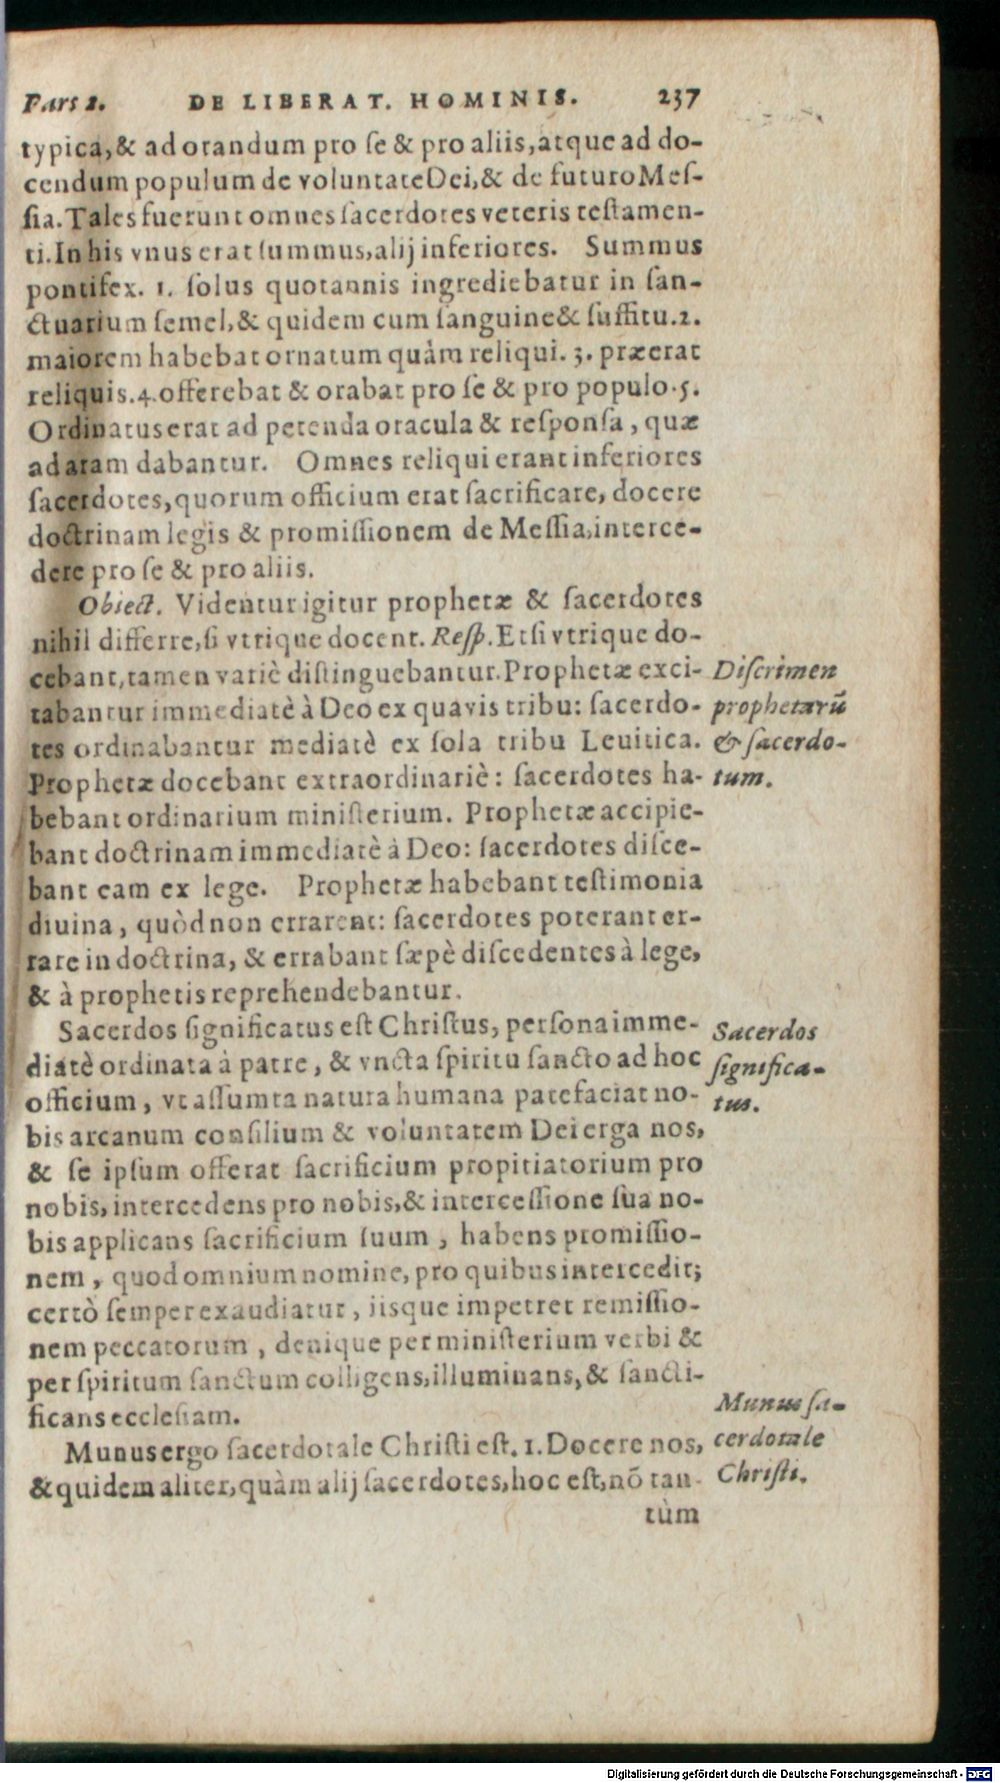 Pars 2. DE LIBERAT. HOMINIS. 237
typica, & ad orandum pro se & pro aliis, atque ad do-
cendum populum de voluntate Dei, & de futuro Mes-
sia. Tales fuerunt omnes sacerdotes veteris testamen-
ti. In his vnus erat summus, alij inferiores. Summus
pontifex. 1. solus quotannis ingrediebatur in san-
ctuarium semel, & quidem cum sanguine & suffitu. 2.
maiorem habebat ornatum quàm reliqui. 3. præerat
reliquis. 4. offerebat & orabat pro se & pro populo. 5.
Ordinatus erat ad petenda oracula & responsa, quæ
ad aram dabantur. Omnes reliqui erant inferiores
sacerdotes, quorum officium erat sacrificare, docere
doctrinam legis & promissionem de Messia, interce-
dere pro se & pro aliis.
Obiect. Videntur igitur prophetæ & sacerdotes
nihil differre, si vtrique docent. Resp. Etsi vtrique do-
cebant, tamen variè distinguebantur. Prophetæ exci-
tabantur immediatè à Deo ex quavis tribu: sacerdo-
tes ordinabantur mediatè ex sola tribu Leuitica.
Prophetæ docebant extraordinariè: sacerdotes ha-
bebant ordinarium ministerium. Prophetæ accipie-
bant doctrinam immediatè à Deo: sacerdotes disce-
bant eam ex lege. Prophetæ habebant testimonia
diuina, quòd non errarent: sacerdotes poterant er-
rare in doctrina, & errabant sæpè discedentes à lege,
& à prophetis reprehendebantur.
Discrimen
prophetarū
& sacerdo-
tum.
Sacerdos significatus est Christus, persona imme-
diatè ordinata à patre, & vncta spiritu sancto ad hoc
officium, vt assumta natura humana patefaciat no-
bis arcanum consilium & voluntatem Dei erga nos,
& se ipsum offerat sacrificium propitiatorium pro
nobis, intercedens pro nobis, & intercessione sua no-
bis applicans sacrificium suum, habens promissio-
nem, quod omnium nomine, pro quibus intercedit;
certò semper exaudiatur, iisque impetret remissio-
nem peccatorum, denique per ministerium verbi &
per spiritum sanctum colligens, illuminans, & sancti-
ficans ecclesiam.
Sacerdos
significa-
tus.
Munus ergo sacerdotale Christi est. 1. Docere nos,
& quidem aliter, quàm alij sacerdotes, hoc est, nō tan-
tùm
Munus sa-
cerdotale
Christi.
Digitalisierung gefördert durch die Deutsche Forschungsgemeinschaft - DFG